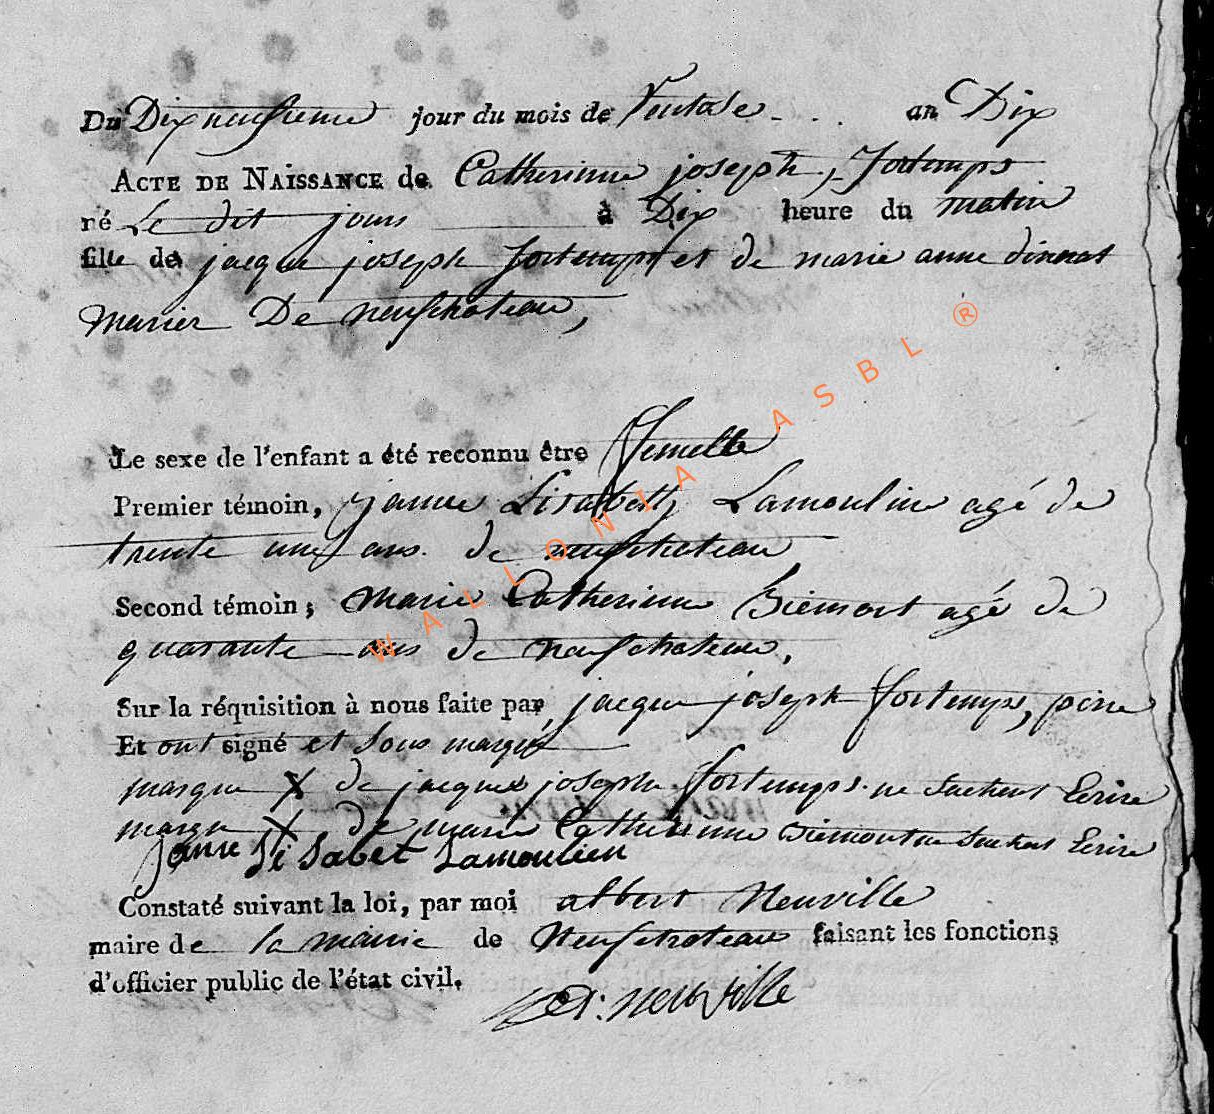 Du Dix neufieme jour du mois de Ventose - . . an Dix
ACTE DE NAISSANCE de Catherinne joseph, fortemps
né Le dit jours à Dix heure du matin
fille de jacque joseph fortemps et de marie anne dinant
marier De neufchateau,
Le sexe de l'enfant a été reconnu être femelle
Premier témoin, janne Lisabeth Lamouline agé de
trente une ans. de neufchateau
Second témoin; marie Catherinne Siemont agé de
quarante ans de neufchateau,
Sur la réquisition à nous faite par jacque joseph fortemps, pere
Et ont signé et sous marqué
marque X de jacque joseph fortemps ne sachant Ecrire
marque X de marie Catherinne Siemont ne sachant Ecrire
janne Li Sabet Lamoulien
Constaté suivant la loi, par moi albert Neuville
maire de la mairie de Neufchateau faisant les fonctions
d'officier public de l'état civil.
neuville
WALLONIA ASBL ®